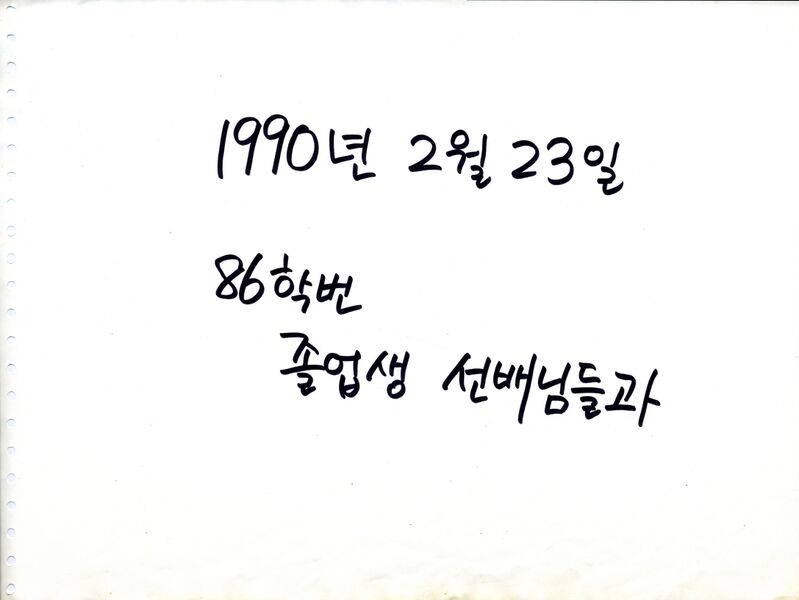 1990년 2월 23일
86학번
졸업생 선배님들과